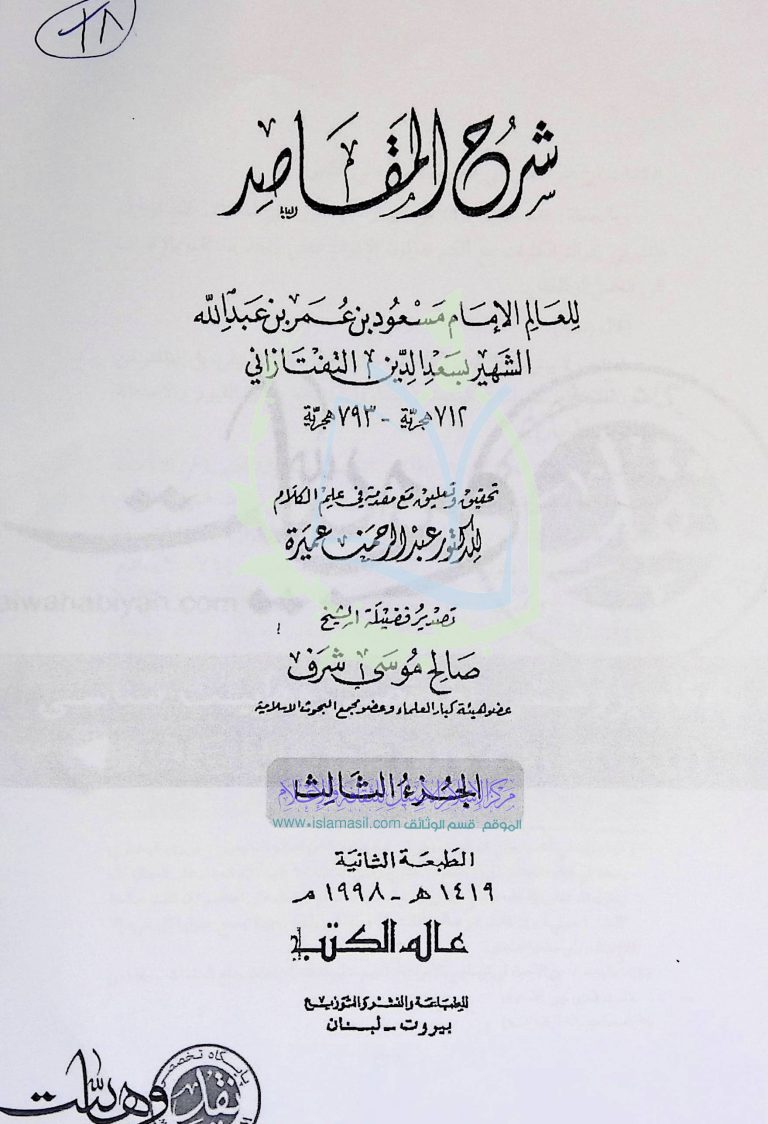 ١٨
شرح المقاصد
للعالم الإمام مسعود بن عمر بن عبد الله
الشهير بسعد الدين التفتازاني
٧١٢ هجرية - ٧٩٣ هجرية
تحقيق وتعليق مع مقدمة في علم الكلام
للدكتور عبد الرحمن عميرة
تصدير فضيلة الشيخ
صالح موسى شرف
عضو هيئة كبار العلماء وعضو مجمع البحوث الاسلامية
الجزء الثالث
الموقع قسم الوثائق www.islamasil.com
الطبعة الثانية
١٤١٩ هـ - ١٩٩٨ م
عالم الكتب
للطباعة والنشر والتوزيع
بيروت - لبنان
پایگاه تخصصی
نقد وهابیت